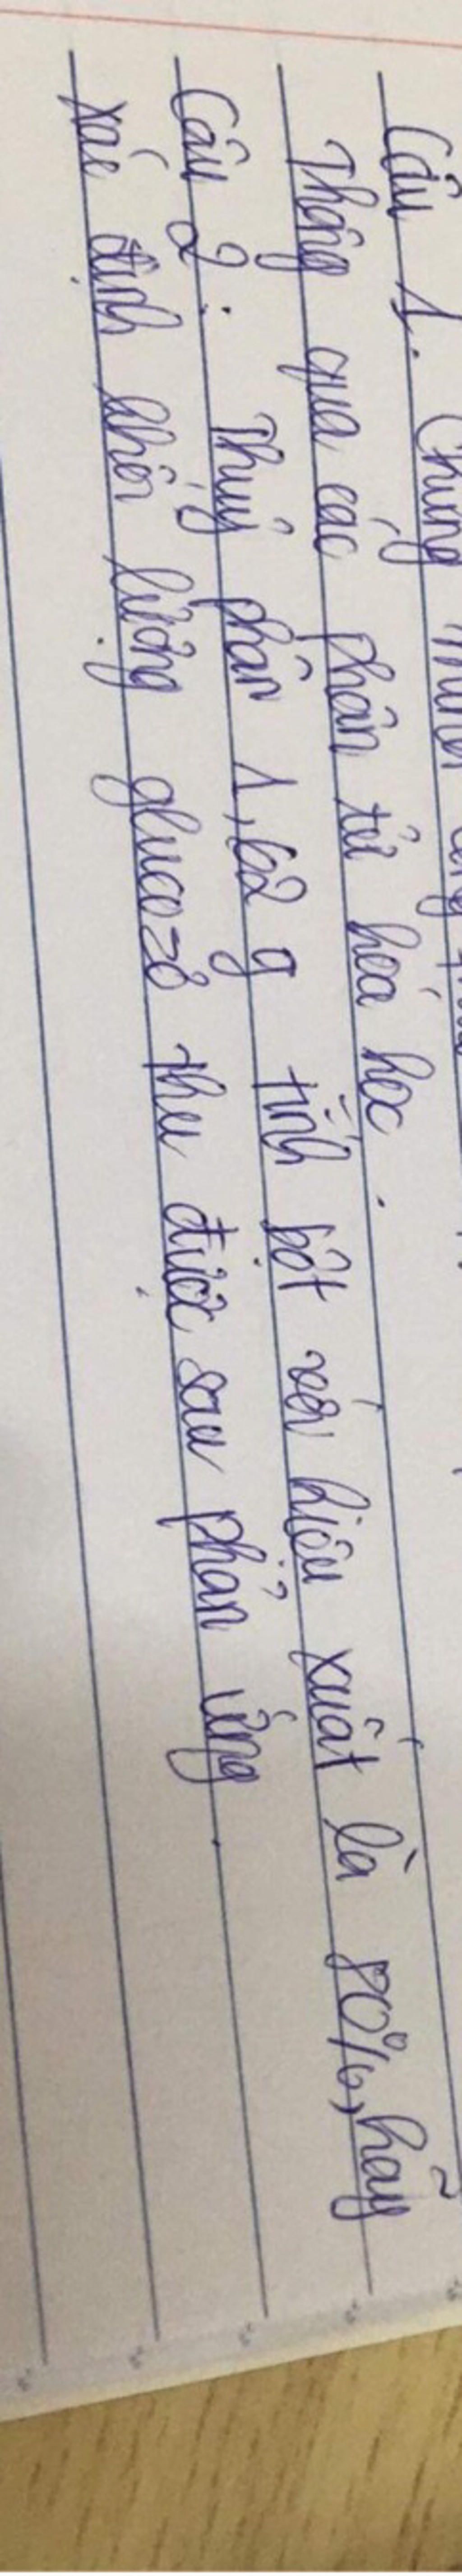 Câu 1. Chứng minh
Thông qua các phân tử hoá học.
Câu 2. Thuỷ phân 1,62 g tinh bột với hiệu xuất là 80%, hãy
xác định khối lượng glucozơ thu được sau phản ứng.